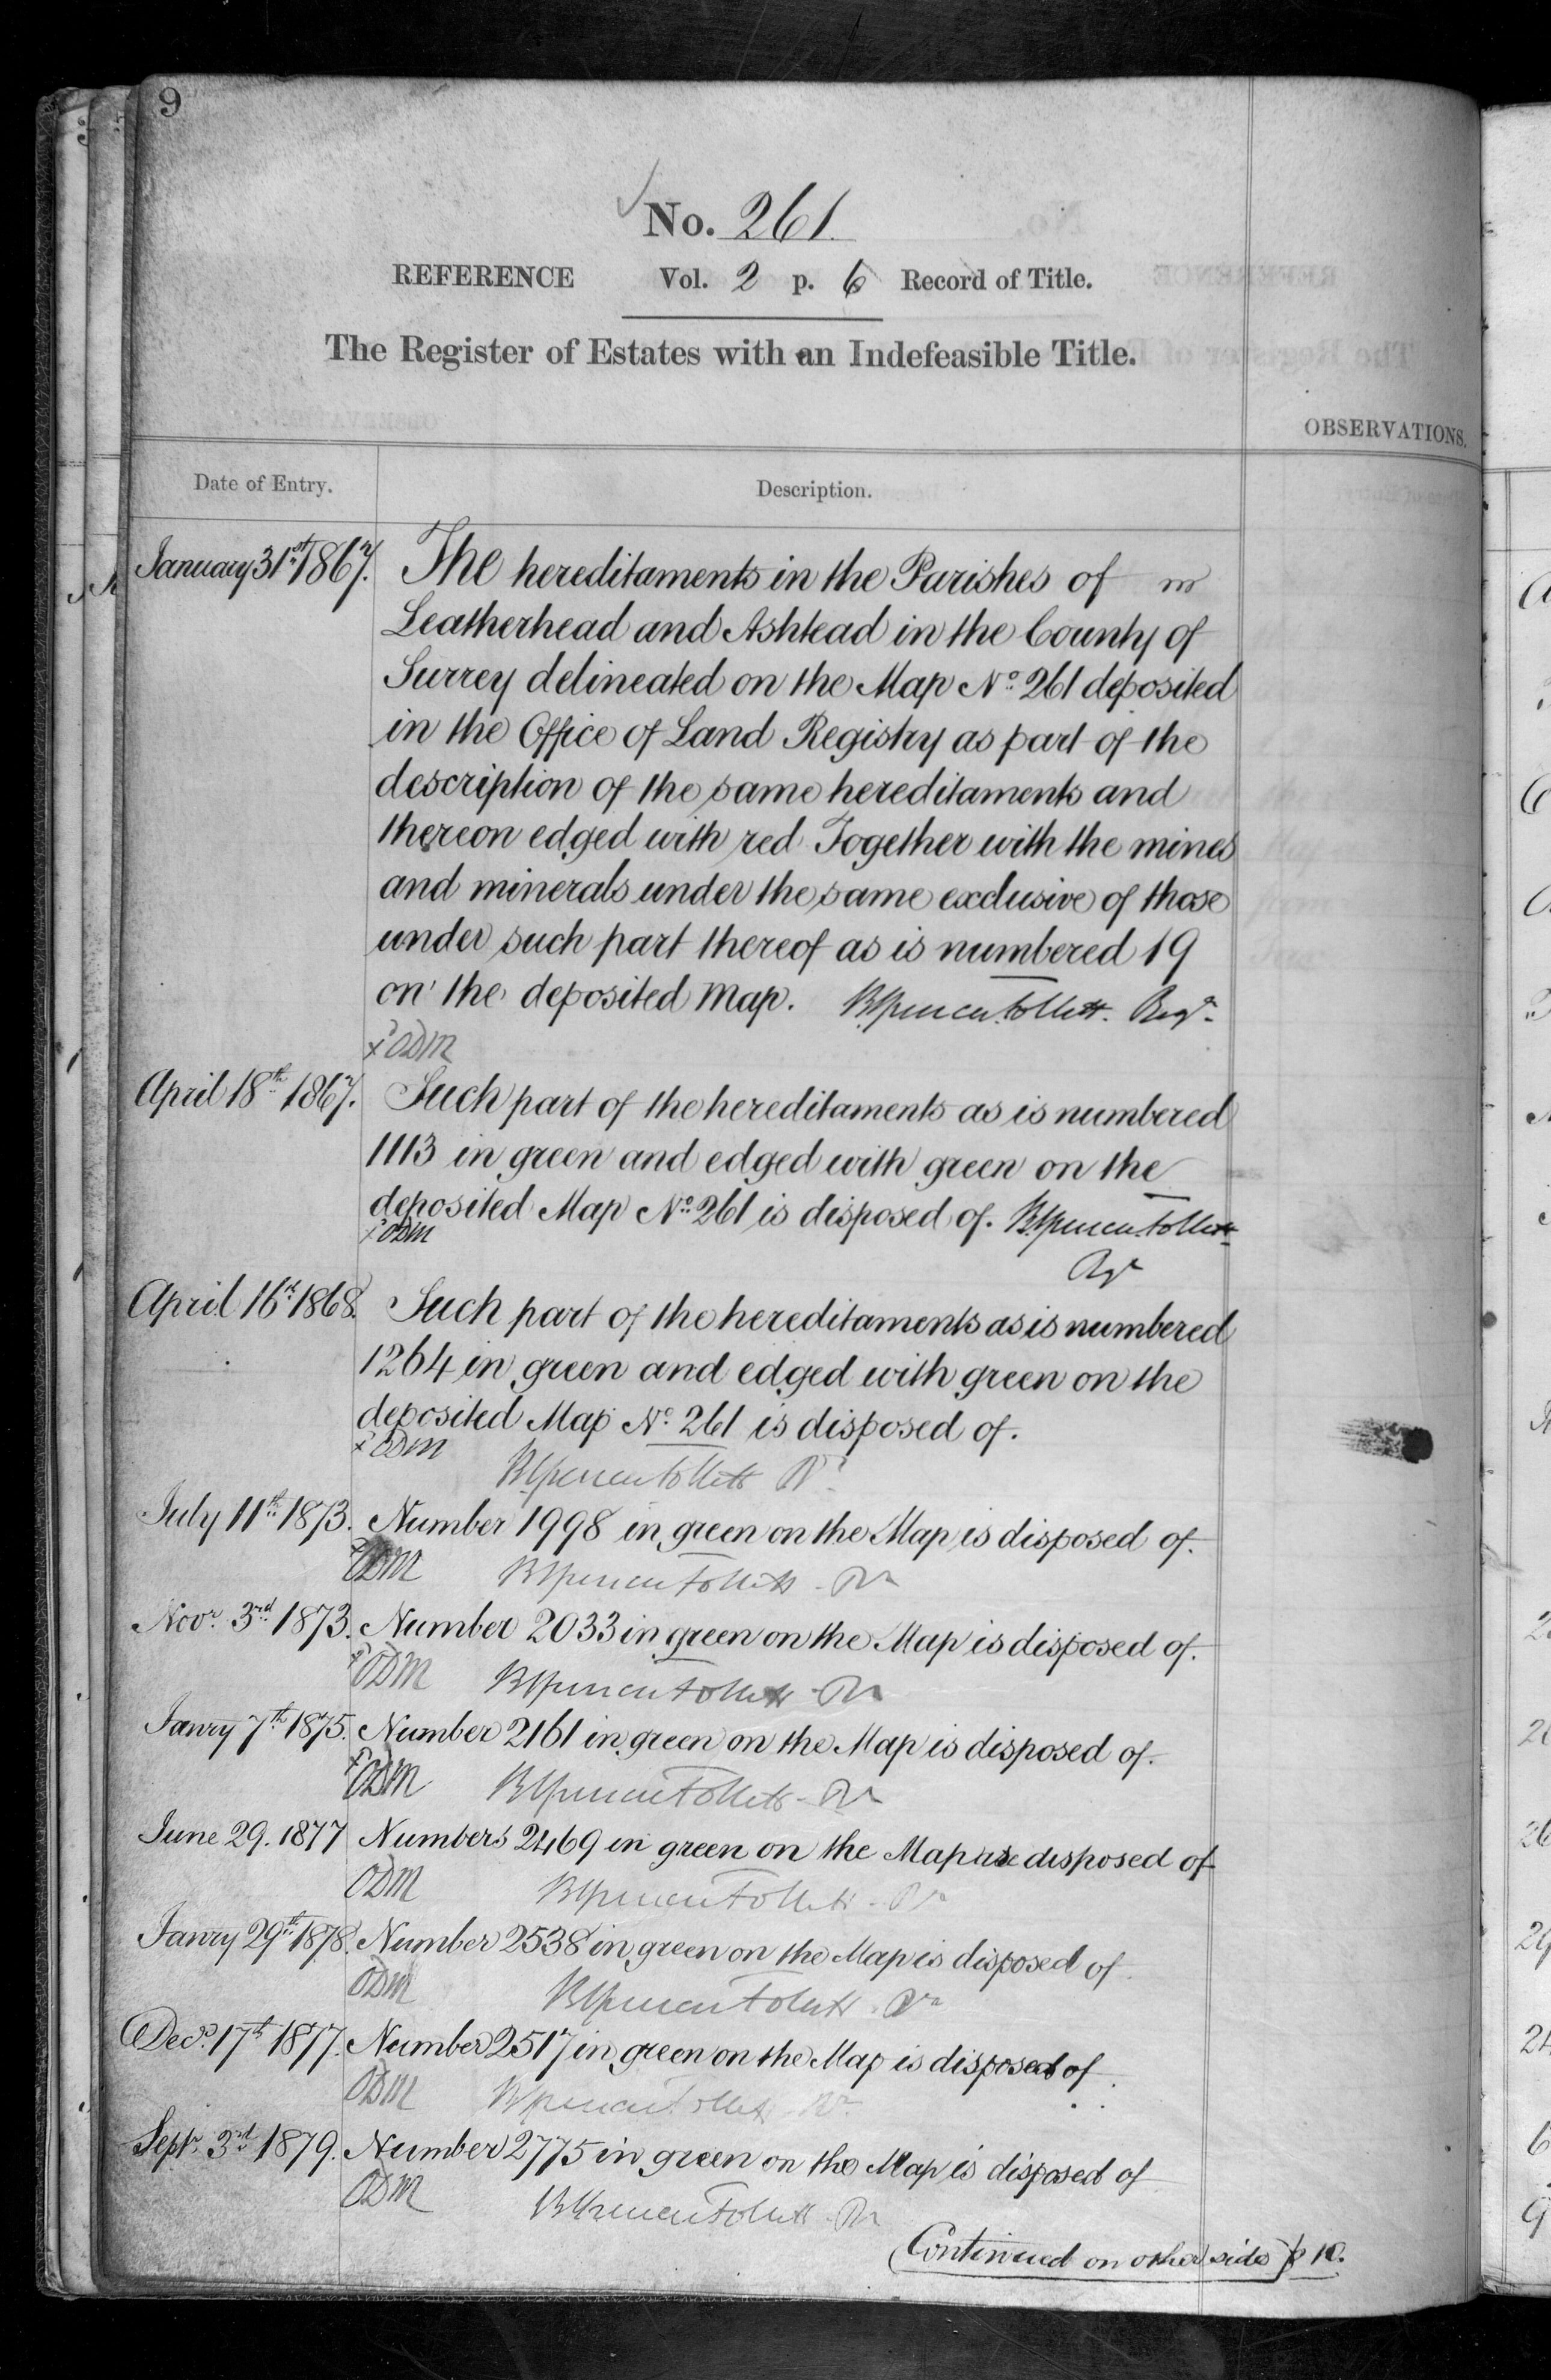 9
No. 261.
REFERENCE Vol. 2 p. 6 Record of Title.
The Register of Estates with an Indefeasible Title.
OBSERVATIONS.
Date of Entry. Description.
January 31st 1867. The hereditaments in the Parishes of
Leatherhead and Ashtead in the County of
Surrey delineated on the Map No. 261 deposited
in the Office of Land Registry as part of the
description of the same hereditaments and
thereon edged with red Together with the mines
and minerals under the same exclusive of those
under such part thereof as is numbered 19
on the deposited Map. Brent Spencer Follett. Regr.
ODM
April 18th 1867. Such part of the hereditaments as is numbered
1113 in green and edged with green on the
deposited Map No. 261 is disposed of. BSpencer Follett
ODM
Regr
April 16th 1868. Such part of the hereditaments as is numbered
1264 in green and edged with green on the
deposited Map No. 261 is disposed of.
ODM
BSpencer Follett Rr
July 11th 1873. Number 1998 in green on the Map is disposed of.
ODM BSpencer Follett Rr
Novr. 3rd 1873. Number 2033 in green on the Map is disposed of.
ODM BSpencer Follett Rr
Janry 7th 1875. Number 2161 in green on the Map is disposed of.
ODM BSpencer Follett Rr
June 29. 1877 Numbers 2469 in green on the Map are disposed of
ODM BSpencer Follett Rr
Janry 29th 1878. Number 2538 in green on the Map is disposed of
ODM BSpencer Follett Rr
Decr. 17th 1877. Number 2517 in green on the Map is disposed of.
ODM BSpencer Follett Rr
Septr. 3rd 1879. Number 2775 in green on the Map is disposed of
ODM BSpencer Follett Rr
(Continued on other side) p 10.